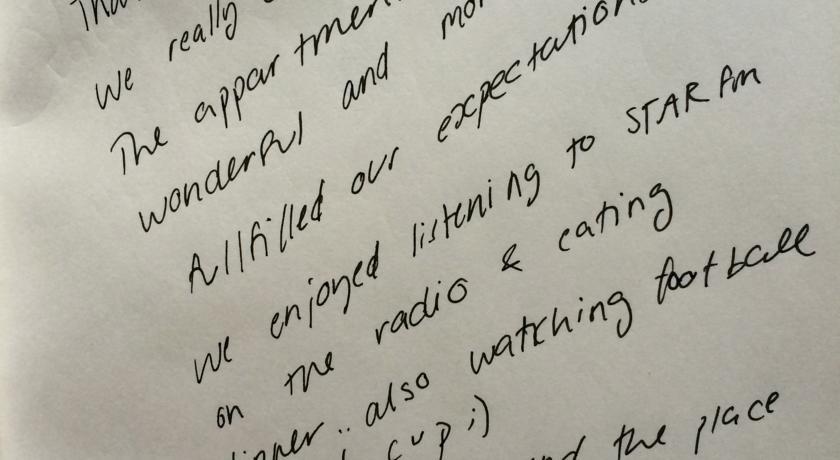 We really
The appartment
wonderful and
fullfilled our expectations
we enjoyed listening to STAR fm
on the radio & eating
dinner .. also watching football
cup ;)
the place